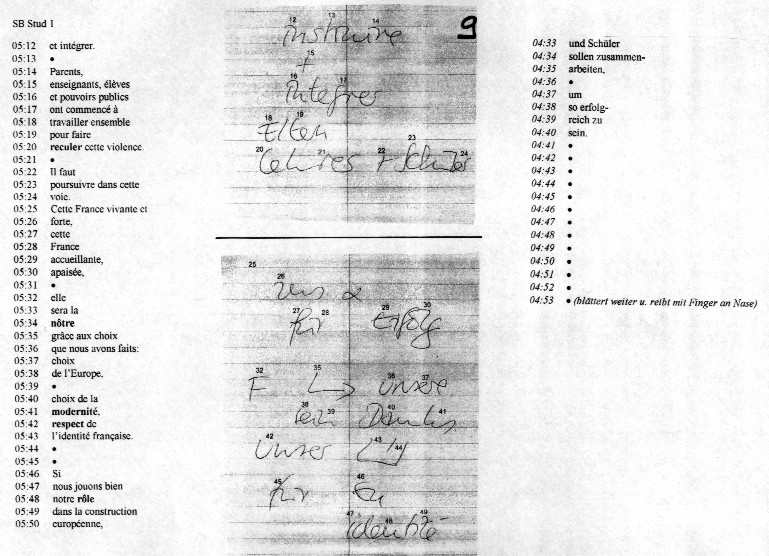 SB Stud 1
05:12 et intégrer.
05:13 •
05:14 Parents,
05:15 enseignants, élèves
05:16 et pouvoirs publics
05:17 ont commencé à
05:18 travailler ensemble
05:19 pour faire
05:20 reculer cette violence.
05:21 •
05:22 Il faut
05:23 poursuivre dans cette
05:24 voie.
05:25 Cette France vivante et
05:26 forte,
05:27 cette
05:28 France
05:29 accueillante,
05:30 apaisée,
05:31 •
05:32 elle
05:33 sera la
05:34 nôtre
05:35 grâce aux choix
05:36 que nous avons faits:
05:37 choix
05:38 de l'Europe,
05:39 •
05:40 choix de la
05:41 modernité,
05:42 respect de
05:43 l'identité française.
05:44 •
05:45 •
05:46 Si
05:47 nous jouons bien
05:48 notre rôle
05:49 dans la construction
05:50 européenne,
9
12 13 14
instruire
15
+
16 17
integrer
18 19
Elten
20 21 22 23 24
Lehres + Schüler
25
26
27 28 29 30
für Erfolg
32 35 36 37
F unsere
38 39 40 41
42 43 44
unser
45 46
für
47 48 49
identité
04:33 und Schüler
04:34 sollen zusammen-
04:35 arbeiten,
04:36 •
04:37 um
04:38 so erfolg-
04:39 reich zu
04:40 sein.
04:41 •
04:42 •
04:43 •
04:44 •
04:45 •
04:46 •
04:47 •
04:48 •
04:49 •
04:50 •
04:51 •
04:52 •
04:53 • (blättert weiter u. reibt mit Finger an Nase)